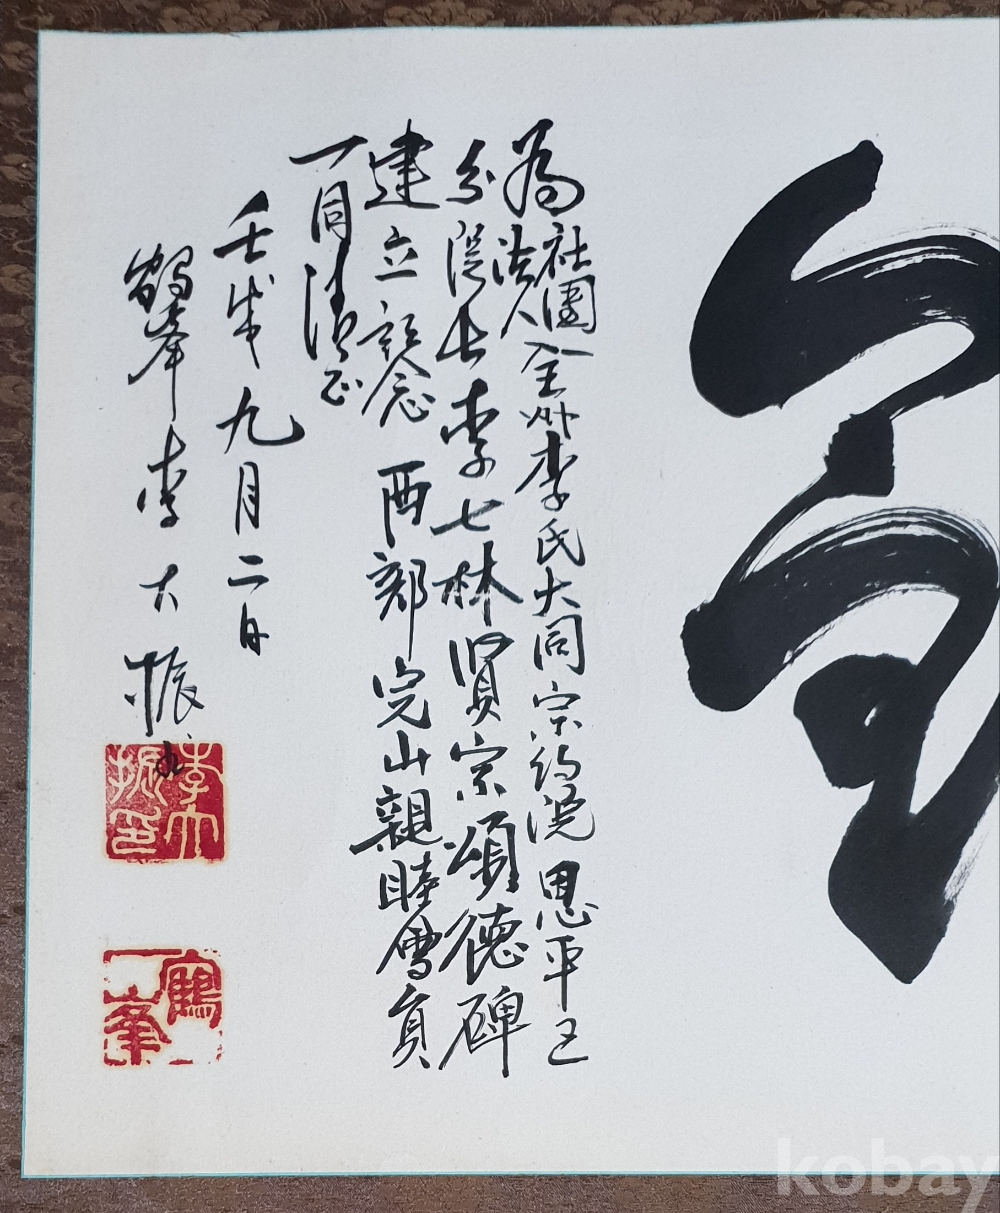 為 社團法人 全州李氏大同宗約院 恩平
分院長 李七林 賢宗 頌德碑
建立記念 西部完山親睦會員
一同 清正
壬戌九月二日
鶴峯 李大振
李大振印
鶴峯
kobay